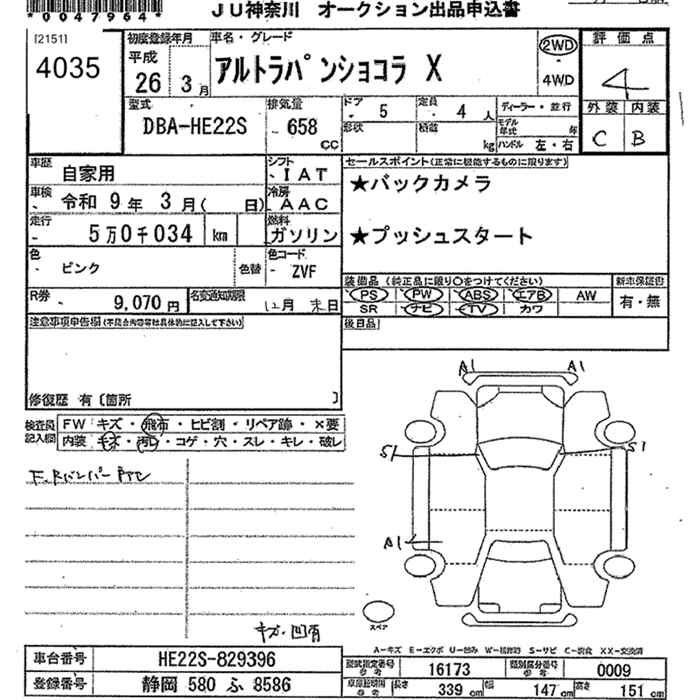 *0047964*
JU神奈川 オークション出品申込書
[2151]
4035
初度登録年月
平成
26 3月
車名・グレード
アルトラパンショコラ X
2WD
・
4WD
評価点
4
外装 内装
C B
型式
DBA-HE22S
排気量
658
CC
ドア
5
定員
4 人
形状
積載
kg
ディーラー・並行
モデル年式 年
ハンドル 左・右
車歴
自家用
シフト
IAT
セールスポイント(正常に機能するものに限ります)
★バックカメラ
★プッシュスタート
車検
令和 9年 3月( 日)
冷房
AAC
走行
5万0千034 km
燃料
ガソリン
色
ピンク
色替
色コード
ZVF
装備品(純正品に限り○をつけてください)
PS PW ABS エアB AW
SR ナビ TV カワ
新車保証書
有・無
R券
9,070円
名変通知期限
12月 末日
後日品
注意事項申告欄(不具合内容等は具体的に記入して下さい)
修復歴 有〔箇所 〕
検査員記入欄
FW キズ・飛石・ヒビ割・リペア跡・×要
内装 キズ・汚れ・コゲ・穴・スレ・キレ・破レ
F、Rバンパー
キズ・凹有
A1 A1
S1 S1
A1
スペア
A-キズ E-エクボ U-凹み W-補修跡 S-サビ C-腐食 XX-交換済
車台番号 HE22S-829396
登録番号 静岡 580 ふ 8586
型式指定番号 参考 16173
類別区分番号 参考 0009
車両諸明細 参考 長さ 339 cm 幅 147 cm 高さ 151 cm